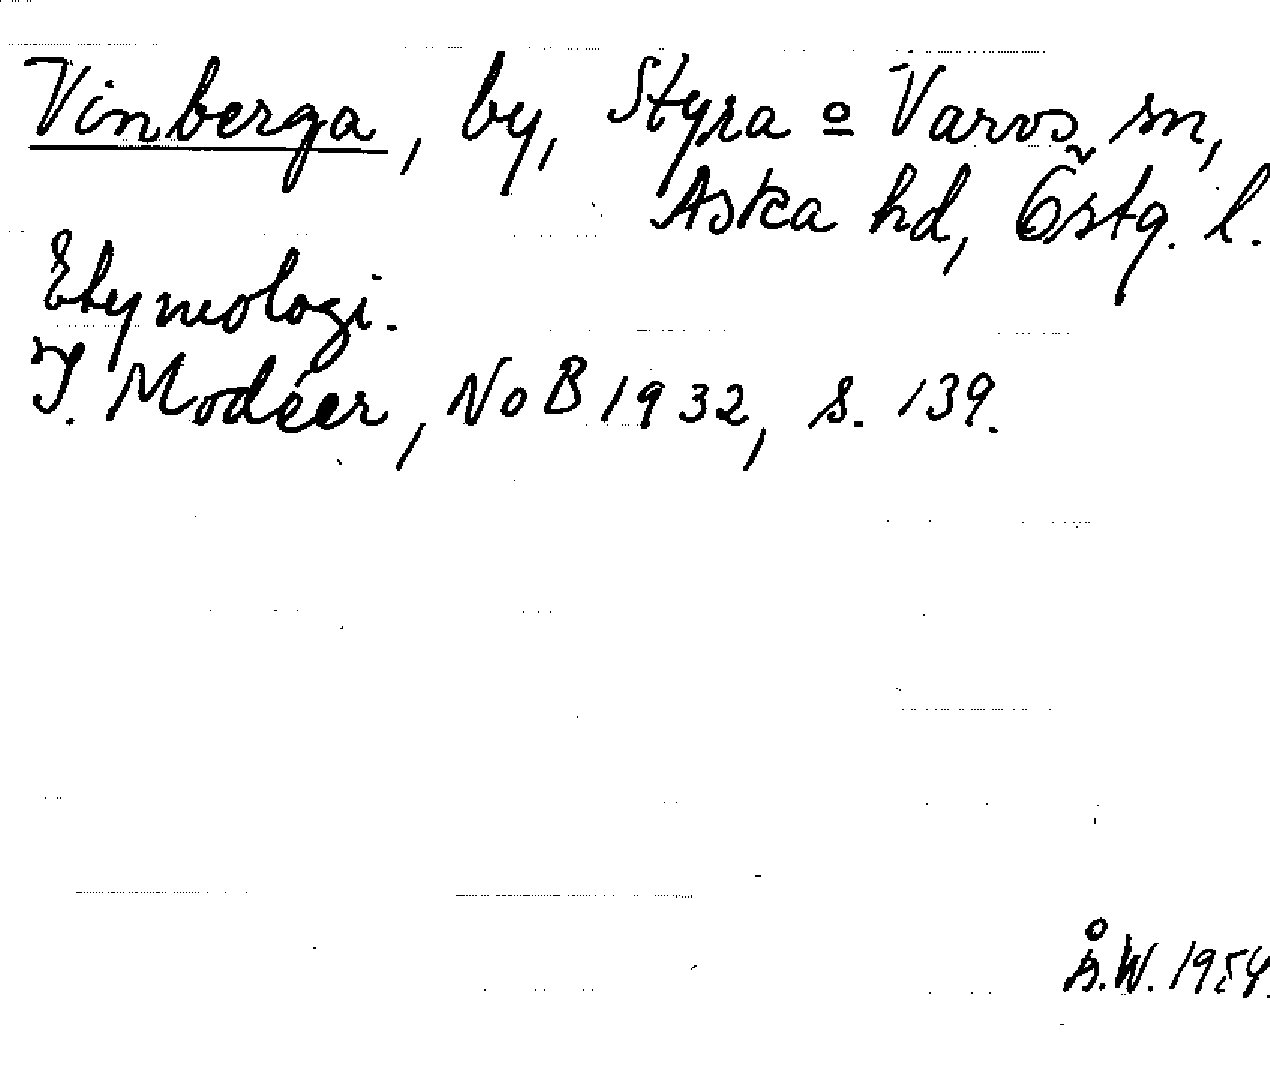 Vinberga, by, Styra o Varvs sn,
Aska hd, Östg. l.
Etymologi.
I. Modéer, NoB 1932, s. 139.
Å.W. 1954.